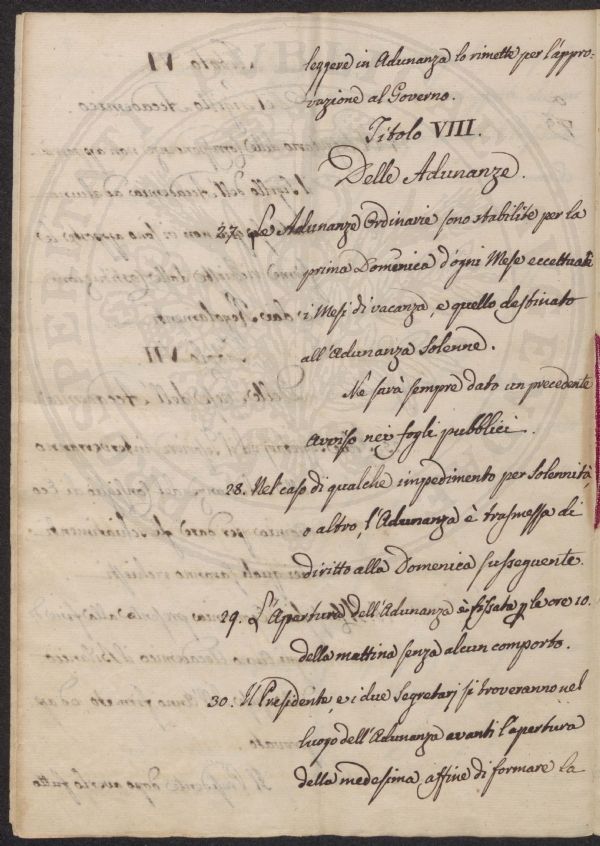 leggere in Adunanza lo rimette per l'appro=
vazione al Governo.
Titolo VIII.
Delle Adunanze.
27. Le Adunanze Ordinarie sono stabilite per la
prima Domenica d'ogni Mese eccettuati
i Mesi di vacanza, e quello destinato
all'Adunanza Solenne.
Ne sarà sempre dato un precedente
Avviso nei fogli pubblici.
28. Nel caso di qualche impedimento per Solennità,
o altro, l'Adunanza è trasmessa di
diritto alla Domenica susseguente.
29. L'Apertura dell'Adunanza è fissata p. le ore 10.
della mattina senza alcun comporto.
30. Il Presidente e i due Segretarj si troveranno nel
luogo dell'Adunanza avanti l'apertura
della medesima, affine di formare la